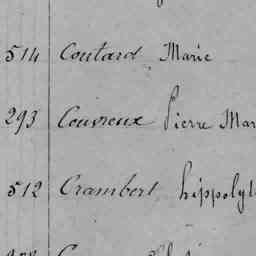 514 Coutard Marie
293 Couvreux Pierre Mar
512 Crambert hippolyt